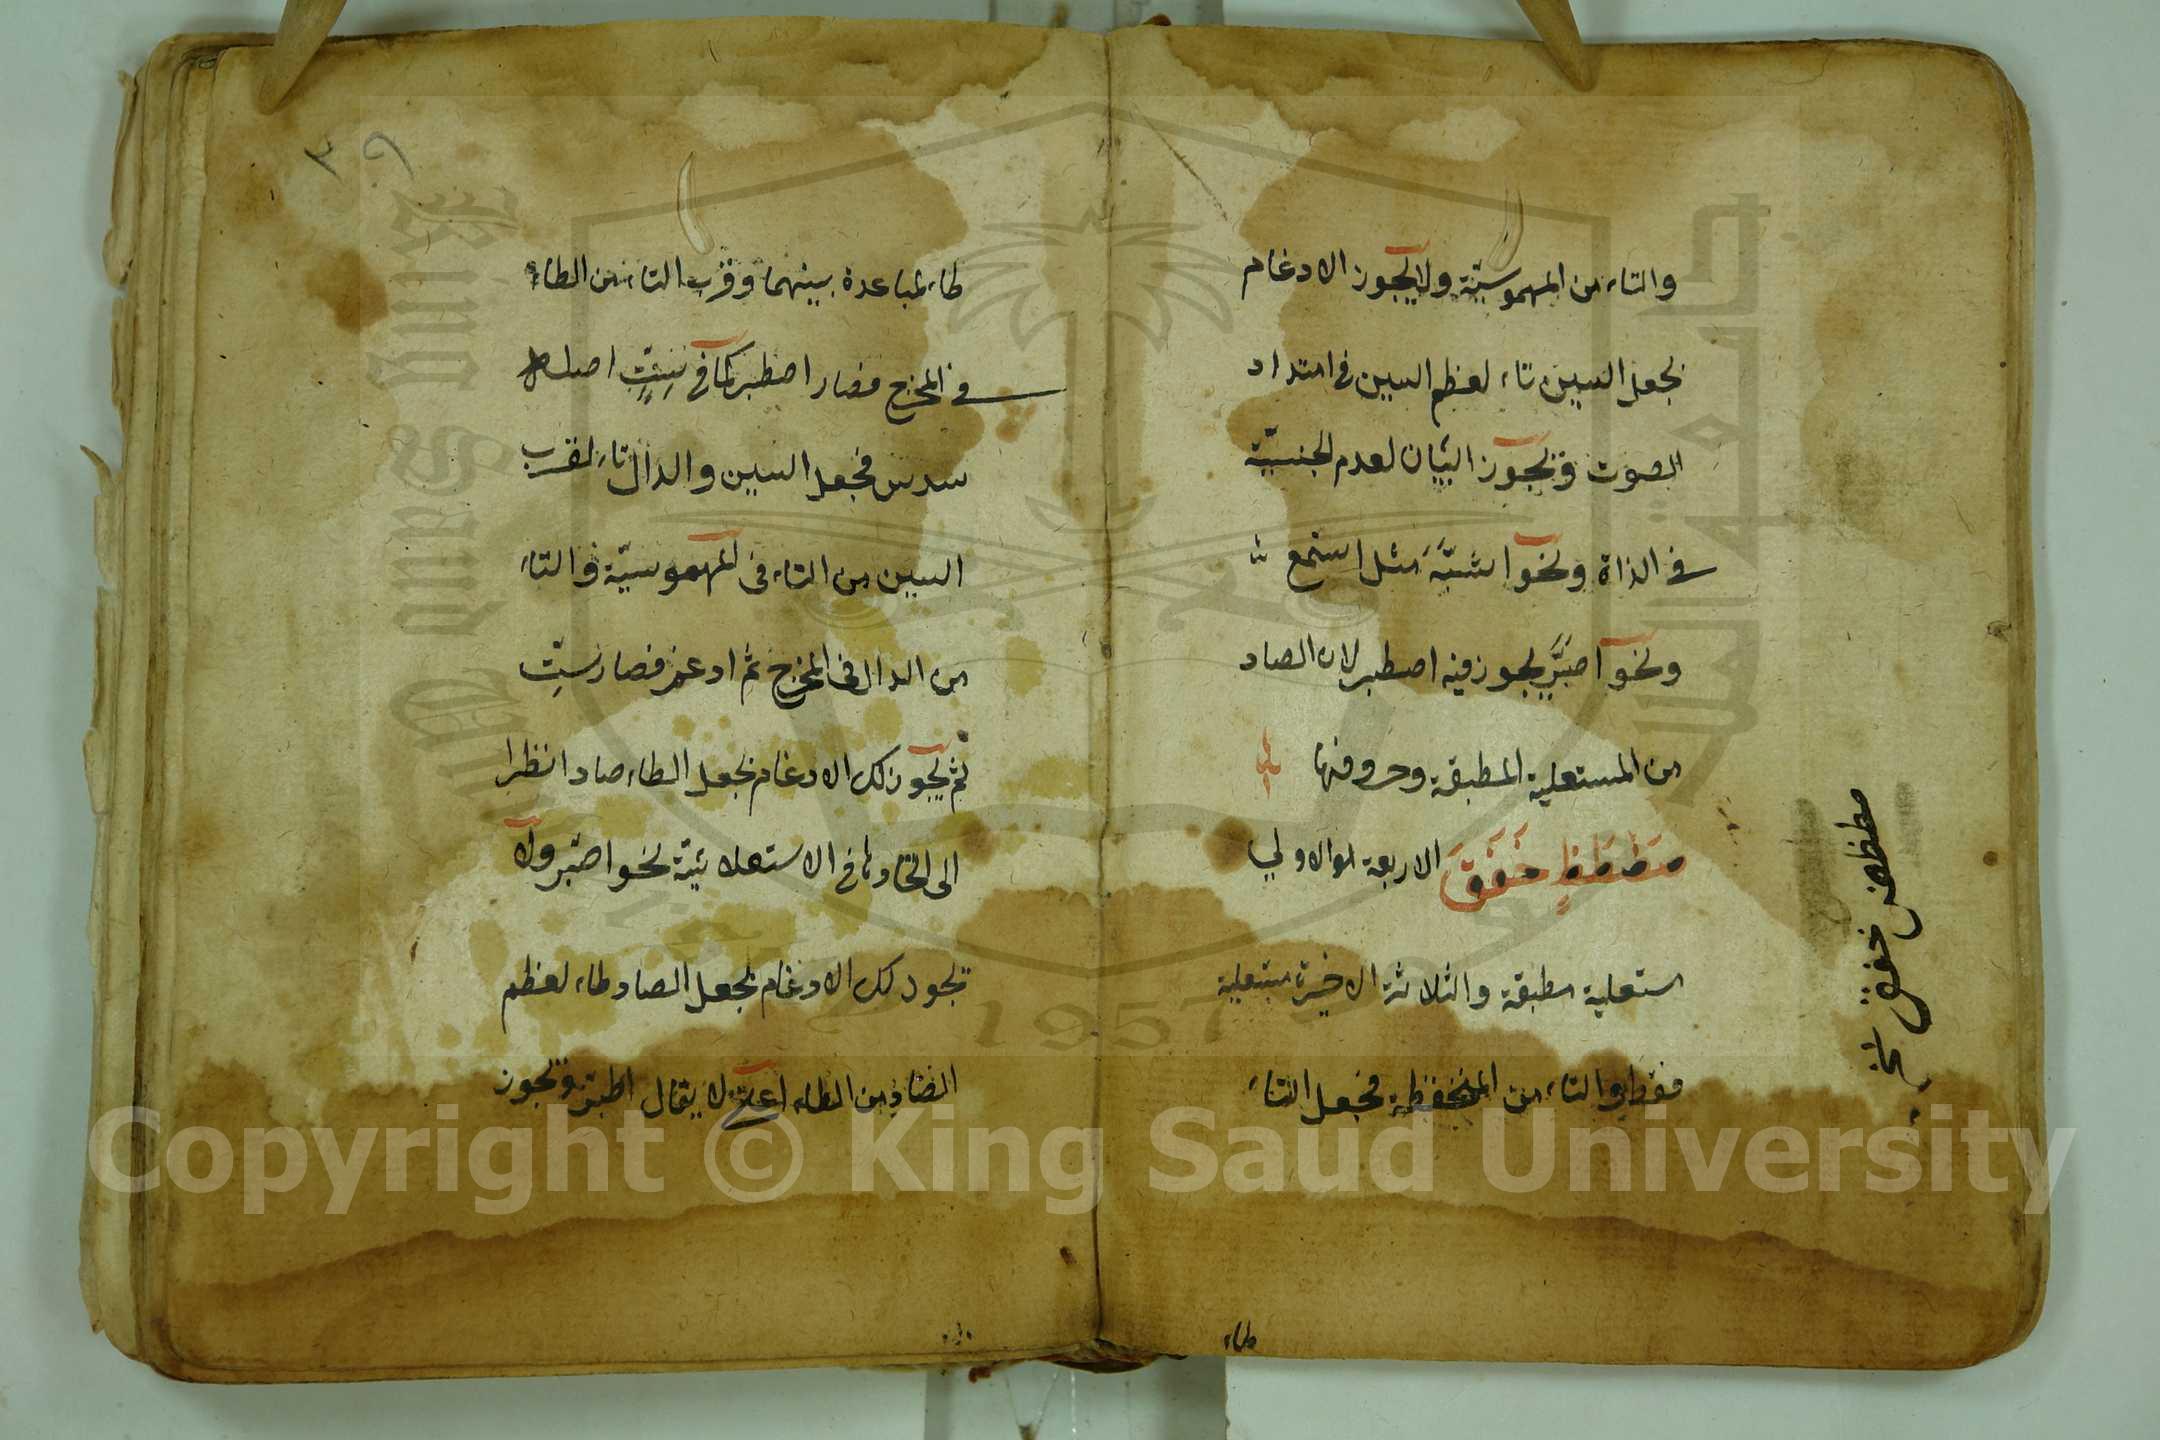 والتاء من المهموسية ولا يجوز الادغام
بجعل السين تاء لعظم السين فى امتداد
الصوت ويجوز البيان لعدم الجنسية
فى الذاة ونحو اشبه مثل استمع
ونحو اصبر يجوز فيه اصطبر لان الصاد
من المستعلية المطبقة وحروفها
صضطظ خغق الاربعة الاولى
مستعلية مطبقة والثلاثة الاخيرة مستعلية
فقط والتاء من المنخفظة فجعل التاء
طاء
صضطظ خغق
طاء لمباعدة بينهما وقرب التاء من الطاء
فى المخرج فصار اصطبر كما فى ست اصله
سدس فجعل السين والدال تاء لقرب
السين من التاء فى المهموسية والتاء
من الدال فى المخرج ثم ادغم فصار ست
ثم يجوز لك الادغام بجعل الطاء صادا نظرا
الى اتحادهما فى الاستعلائية نحو اصبر ولا
يجوز لك الادغام بجعل الصاد طاء لعظم
الصاد من الطاء اعنى لا يقال اطبر ويجوز
٣٩
King Saud University
جامعة الملك سعود
1957
Copyright © King Saud University